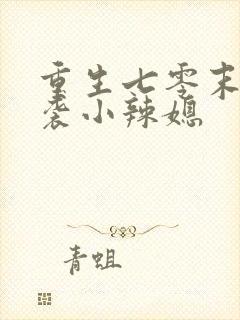 重生七零末
袭小辣媳
青蛆